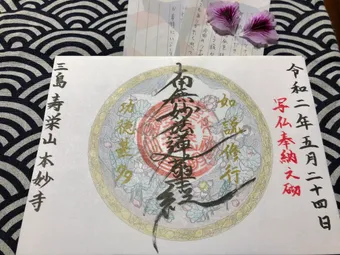 令和二年五月二十四日
写仏奉納之砌
如説修行
南無妙法蓮華経
功徳甚多
三島 寿栄山 本妙寺